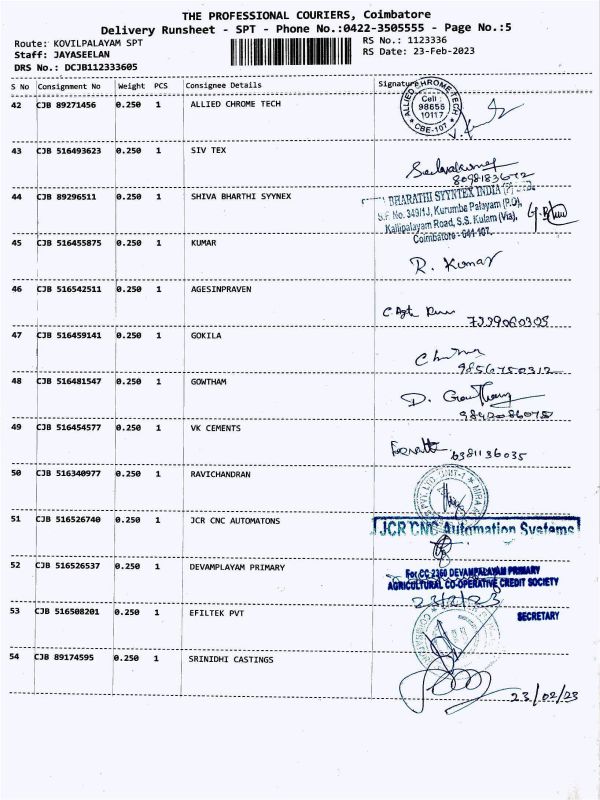 THE PROFESSIONAL COURIERS, Coimbatore
Delivery Runsheet - SPT - Phone No.:0422-3505555 - Page No.:5
Route: KOVILPALAYAM SPT
RS No.: 1123336
Staff: JAYASEELAN
RS Date: 23-Feb-2023
DRS No.: DCJB112333605
S No Consignment No Weight PCS Consignee Details Signature
42 CJB 89271456 0.250 1 ALLIED CHROME TECH
ALLIED CHROME TECH
Cell :
98655
10117
* CBE-107 *
43 CJB 516493623 0.250 1 SIV TEX
8098183672
44 CJB 89296511 0.250 1 SHIVA BHARTHI SYYNEX
BHARATHI SYYNTEX INDIA (P)
S.F. No. 349/1J, Kurumba Palayam (P.O),
Kallipalayam Road, S.S. Kulam (Via),
Coimbatore - 641 107.
45 CJB 516455875 0.250 1 KUMAR
R. Kumar
46 CJB 516542511 0.250 1 AGESINPRAVEN
7339060305
47 CJB 516459141 0.250 1 GOKILA
9856750312
48 CJB 516481547 0.250 1 GOWTHAM
D. Gowthamg
9842086075
49 CJB 516454577 0.250 1 VK CEMENTS
6381136035
50 CJB 516340977 0.250 1 RAVICHANDRAN
PVT. LTD. UNIT-1 * MIRA
51 CJB 516526740 0.250 1 JCR CNC AUTOMATONS
JCR CNC Automation Systems
52 CJB 516526537 0.250 1 DEVAMPLAYAM PRIMARY
For CC 2360 DEVAMPALAYAM PRIMARY
AGRICULTURAL CO-OPERATIVE CREDIT SOCIETY
23/2/23
SECRETARY
53 CJB 516508201 0.250 1 EFILTEK PVT
54 CJB 89174595 0.250 1 SRINIDHI CASTINGS
23/02/23